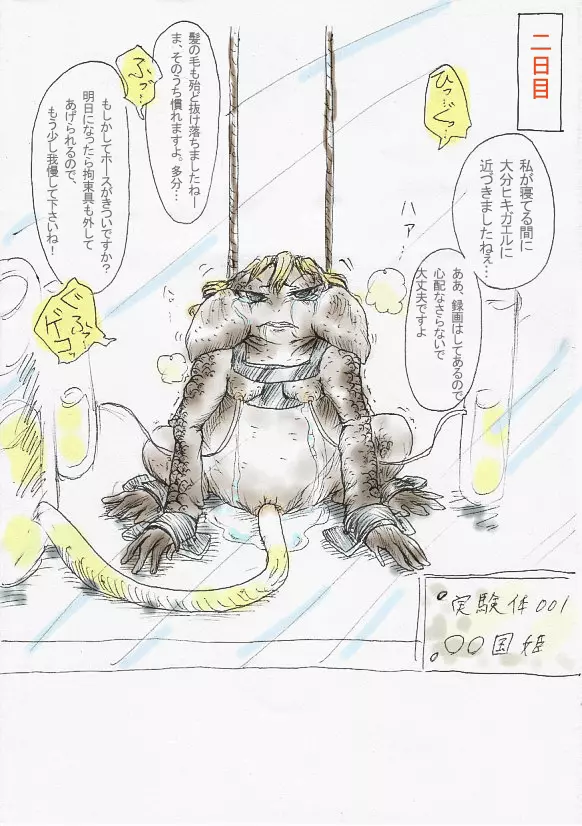 二日目
ひっ…ぐっ…
私が寝てる間に
大分ヒキガエルに
近づきましたねぇ…
ああ、録画はしてあるので
心配なさらないで
大丈夫ですよ
ハァ…
髪の毛も殆ど抜け落ちましたねー
ま、そのうち慣れますよ。多分…
ふっ…
もしかしてホースがきついですか？
明日になったら拘束具も外して
あげられるので、
もう少し我慢して下さいね！
ぐふっ
ゲコッ
実験体001
〇〇国姫